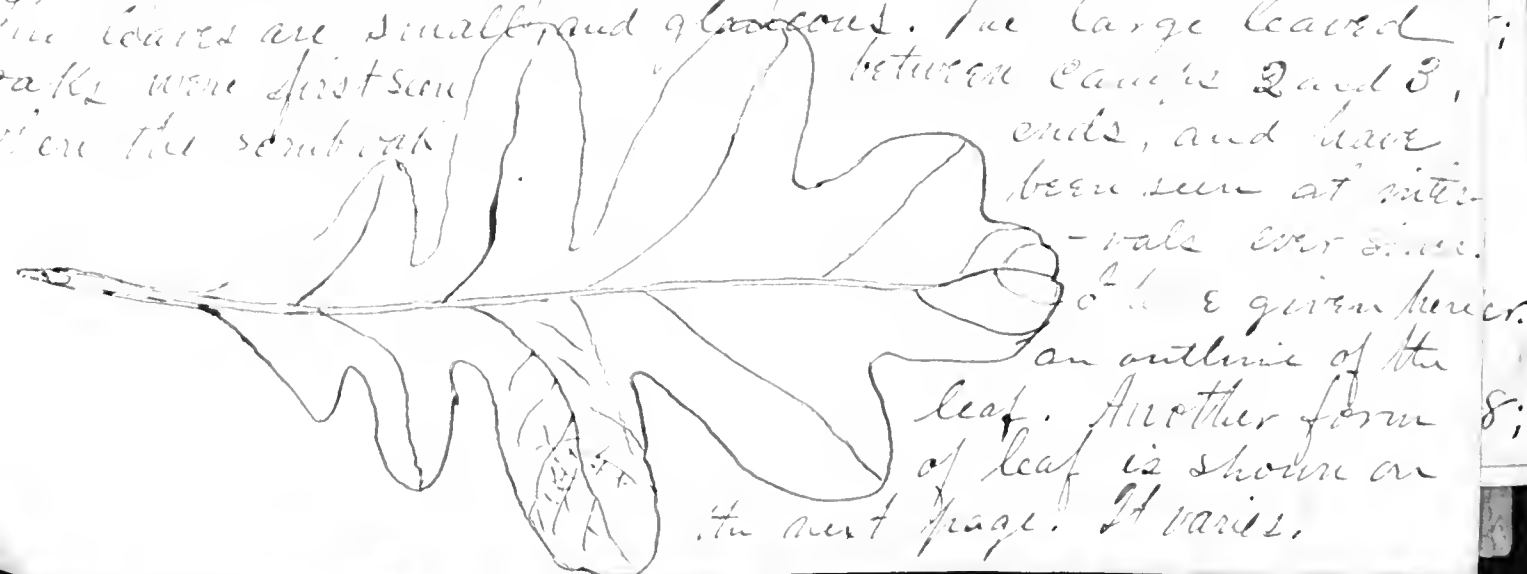 leaves are small, and glaucous. The large leaved
oaks were first seen between Camps 2 and 3,
the scrub oak ends, and have
been seen at inter-
-vals ever since.
given here
an outline of the
leaf. Another form
of leaf is shown on
the next page. It varies.
8;